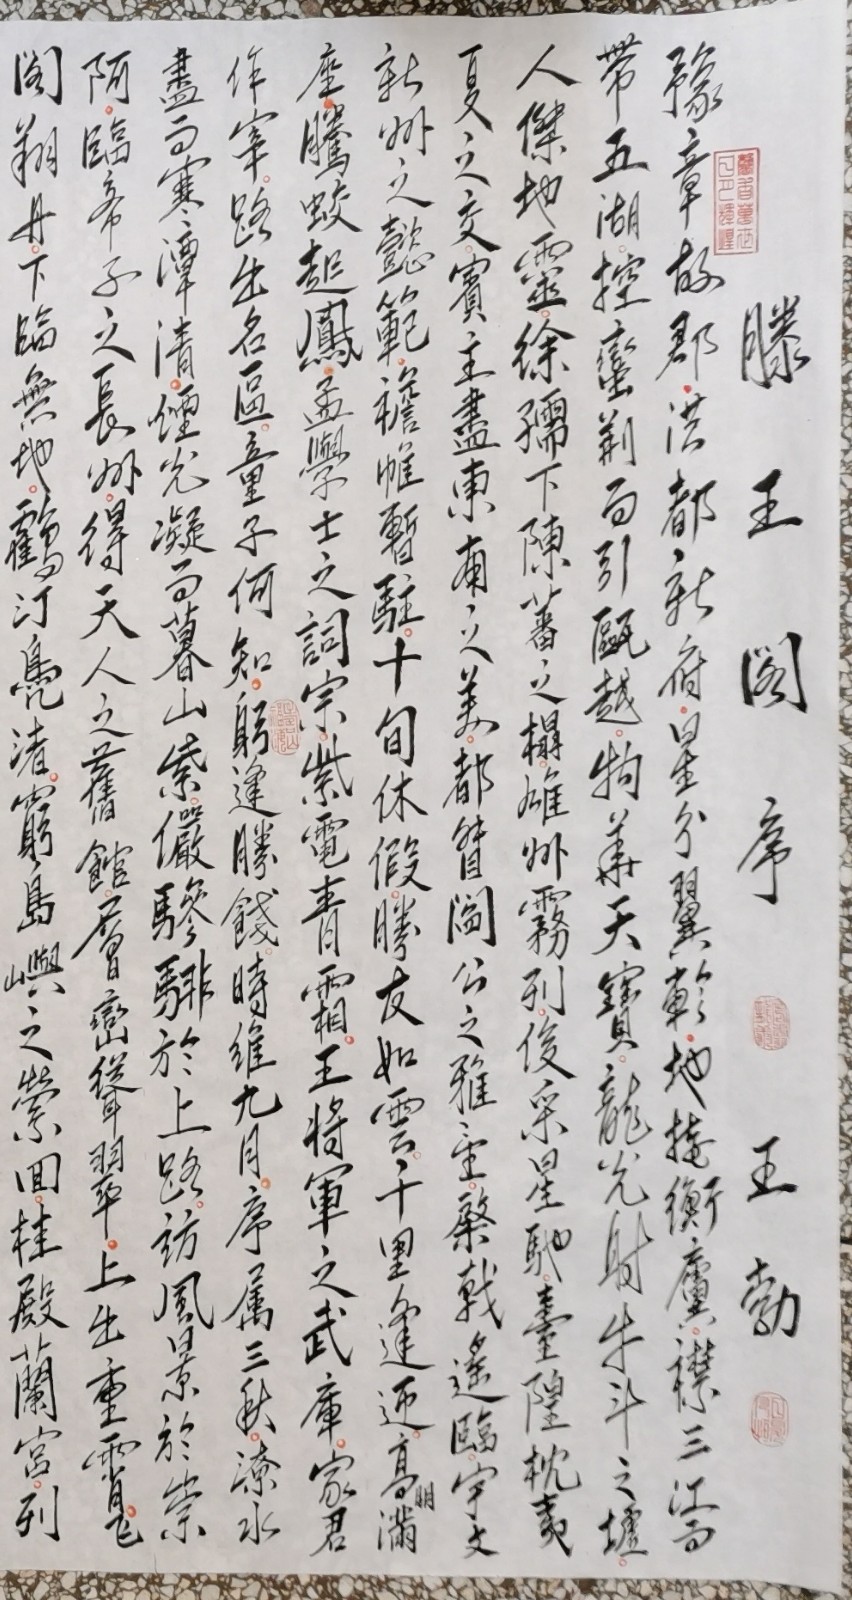 滕王阁序 王勃
豫章故郡。洪都新府。星分翼軫。地接衡廬。襟三江而
帶五湖。控蠻荆而引甌越。物華天寶。龍光射牛斗之墟。
人傑地靈。徐孺下陳蕃之榻。雄州霧列。俊采星馳。臺隍枕夷
夏之交。賓主盡東南之美。都督閻公之雅望。棨戟遙臨。宇文
新州之懿範。襜帷暫駐。十旬休假。勝友如雲。千里逢迎。高朋滿
座。騰蛟起鳳。孟學士之詞宗。紫電青霜。王將軍之武庫。家君
作宰。路出名區。童子何知。躬逢勝餞。時維九月。序属三秋。潦水
盡而寒潭清。煙光凝而暮山紫。儼驂騑於上路。訪風景於崇
阿。臨帝子之長洲。得天人之舊館。層巒聳翠。上出重霄。飞
阁翔丹。下臨無地。鶴汀鳧渚。窮島嶼之縈回。桂殿蘭宮。列